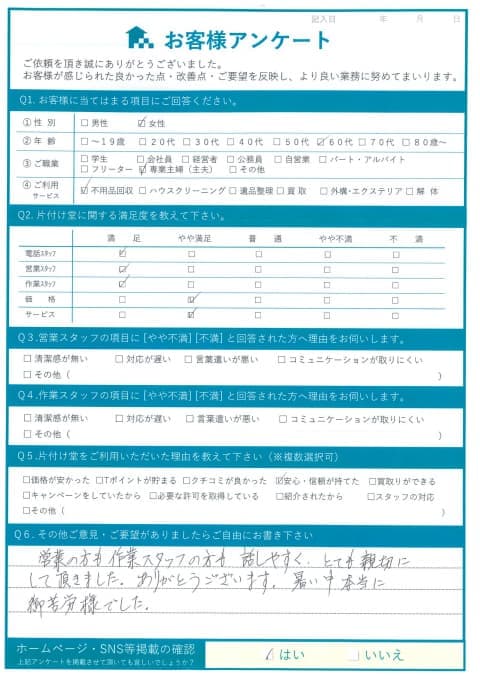 記入日 年 月 日
お客様アンケート
ご依頼を頂き誠にありがとうございました。
お客様が感じられた良かった点・改善点・ご要望を反映し、より良い業務に努めてまいります。
Q1. お客様に当てはまる項目にご回答ください。
①性 別 □男性 ☑女性
②年 齢 □～19歳 □20代 □30代 □40代 □50代 ☑60代 □70代 □80歳～
③ご職業 □学生 □会社員 □経営者 □公務員 □自営業 □パート・アルバイト
□フリーター ☑専業主婦（主夫） □その他
④ご利用サービス ☑不用品回収 □ハウスクリーニング □遺品整理 □買取 □外構・エクステリア □解体
Q2. 片付け堂に関する満足度を教えて下さい。
満 足 やや満足 普 通 やや不満 不 満
電話ｽﾀｯﾌ ☑ □ □ □ □
営業ｽﾀｯﾌ ☑ □ □ □ □
作業ｽﾀｯﾌ ☑ □ □ □ □
価 格 □ ☑ □ □ □
サービス □ ☑ □ □ □
Q3.営業スタッフの項目に[やや不満][不満]と回答された方へ理由をお伺いします。
□清潔感が無い □対応が遅い □言葉遣いが悪い □コミュニケーションが取りにくい
□その他（ ）
Q4.作業スタッフの項目に[やや不満][不満]と回答された方へ理由をお伺いします。
□清潔感が無い □対応が遅い □言葉遣いが悪い □コミュニケーションが取りにくい
□その他（ ）
Q5.片付け堂をご利用いただいた理由を教えて下さい（※複数選択可）
□価格が安かった □Tポイントが貯まる □クチコミが良かった ☑安心・信頼が持てた □買取りができる
□キャンペーンをしていたから □必要な許可を取得している □紹介されたから □スタッフの対応
□その他（ ）
Q6.その他ご意見・ご要望がありましたらご自由にお書き下さい
営業の方も作業スタッフの方も 話しやすく、とても親切に
して頂きました。ありがとうございます。暑い中本当に
御苦労様でした。
ホームページ・SNS等掲載の確認
上記アンケートを掲載させて頂いても宜しいでしょうか？ ☑はい □いいえ